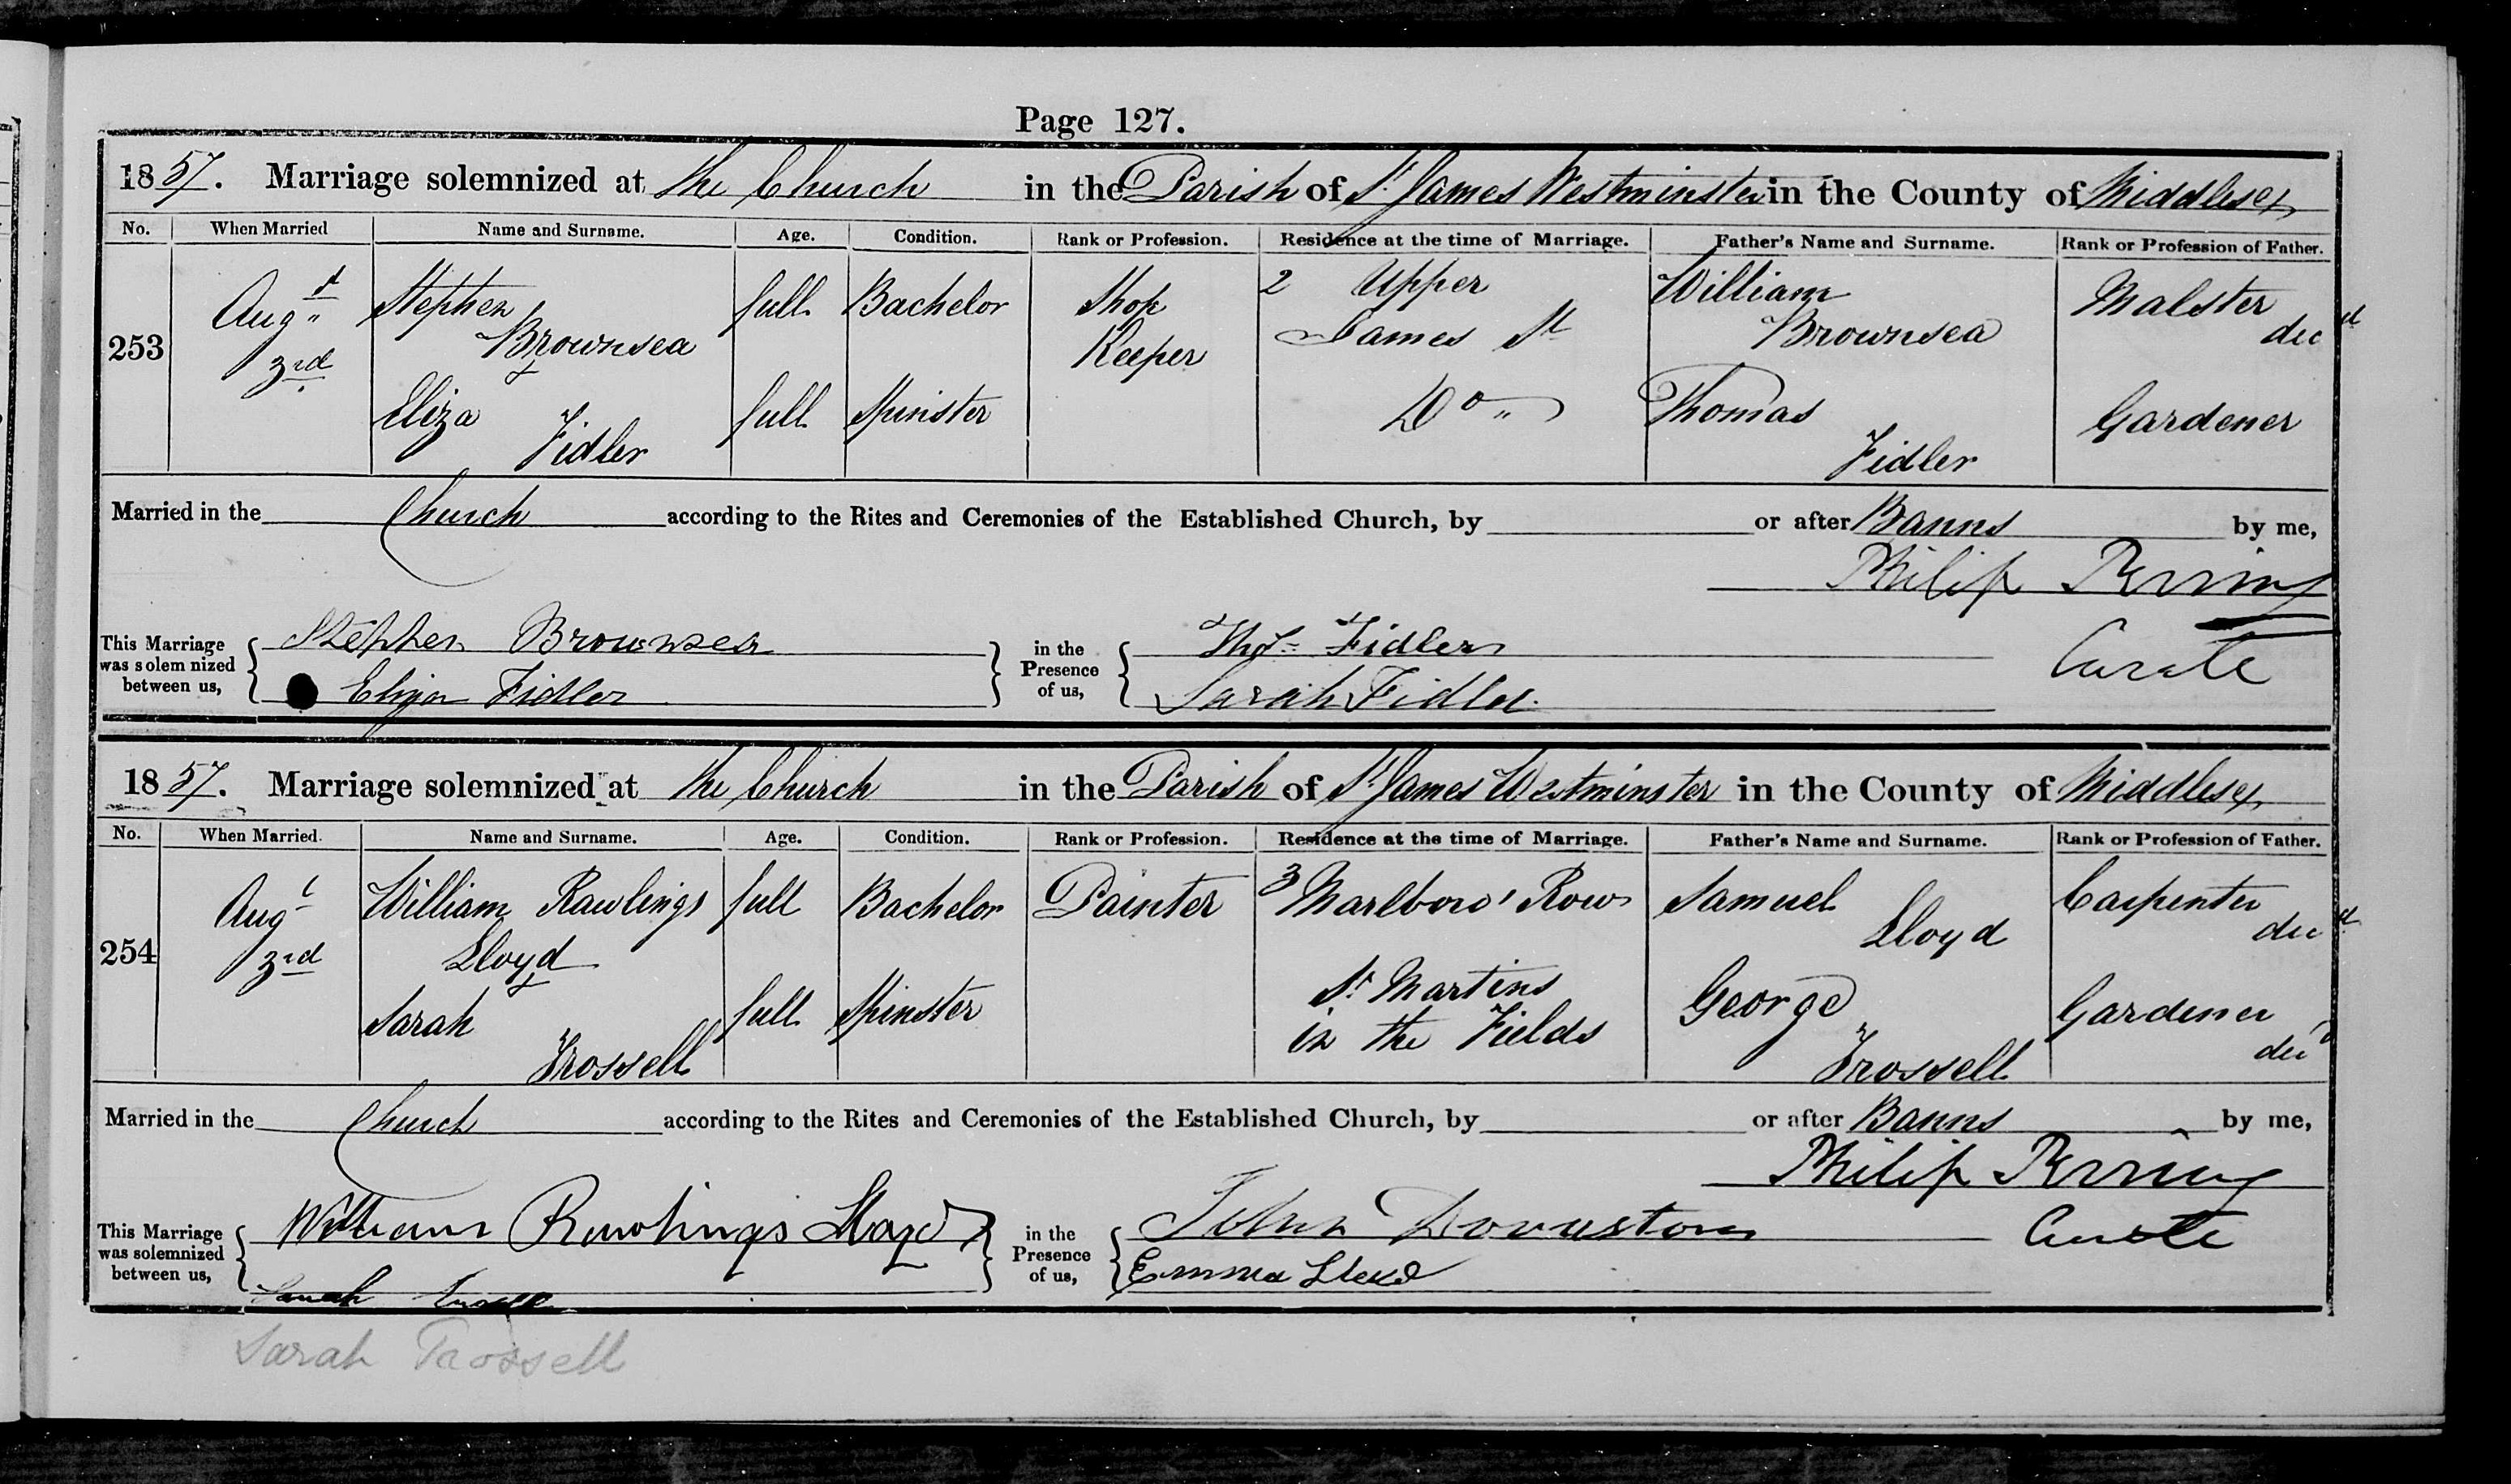 Page 127.
1857. Marriage solemnized at the Church in the Parish of St. James Westminster in the County of Middlesex
No. When Married Name and Surname. Age. Condition. Rank or Profession. Residence at the time of Marriage. Father's Name and Surname. Rank or Profession of Father.
253 Augt 3rd Stephen Brownsea full Bachelor Shop Keeper 2 Upper James St William Brownsea Malster decd
& Eliza Fidler full Spinster Do Thomas Fidler Gardener
Married in the Church according to the Rites and Ceremonies of the Established Church, by or after Banns by me,
Philip Perring
Curate
This Marriage was solemnized between us, Stephen Brownsea in the Presence of us, Thos Fidler
Eliza Fidler Sarah Fidler
1857. Marriage solemnized at the Church in the Parish of St. James Westminster in the County of Middlesex
No. When Married. Name and Surname. Age. Condition. Rank or Profession. Residence at the time of Marriage. Father's Name and Surname. Rank or Profession of Father.
254 Augt 3rd William Rawlings Lloyd full Bachelor Painter 3 Marlboro' Row Samuel Lloyd Carpenter decd
& Sarah Trossell full Spinster St Martins in the Fields George Trossell Gardener decd
Married in the Church according to the Rites and Ceremonies of the Established Church, by or after Banns by me,
Philip Perring
Curate
This Marriage was solemnized between us, William Rawlings Lloyd in the Presence of us, John
Sarah Trossell Emma Lloyd
Sarah Trossell